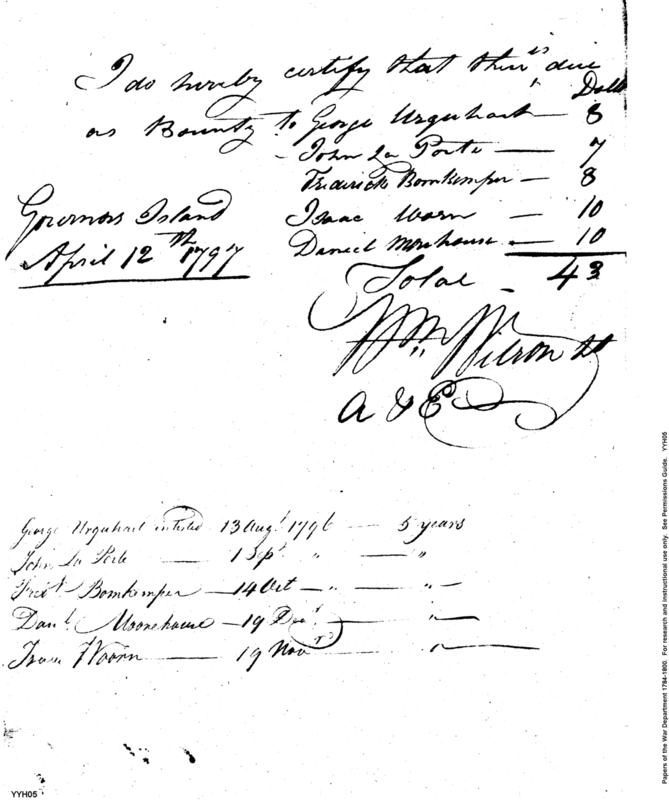 I do hereby certify that their is due
Dolls
as Bounty to George Urquehart — 8
John La Porte — 7
Frederick Bomkemper — 8
Isaac Worn — 10
Daniel Morehouse — 10
Total - 43
Governors Island
April 12th 1797
Wm Wilson Lt
A & E
George Urquhart inlisted 13 Augt 1796 — 5 years
John La Porte — 1 Sept " — "
Fredk Bomkemper — 14 Oct — " — " —
Danl Moorehouse — 19 Decr " —
Isaac Woorn — 19 Novr " —
YYH05
Papers of the War Department 1784-1800. For research and instructional use only. See Permissions Guide. YYH05